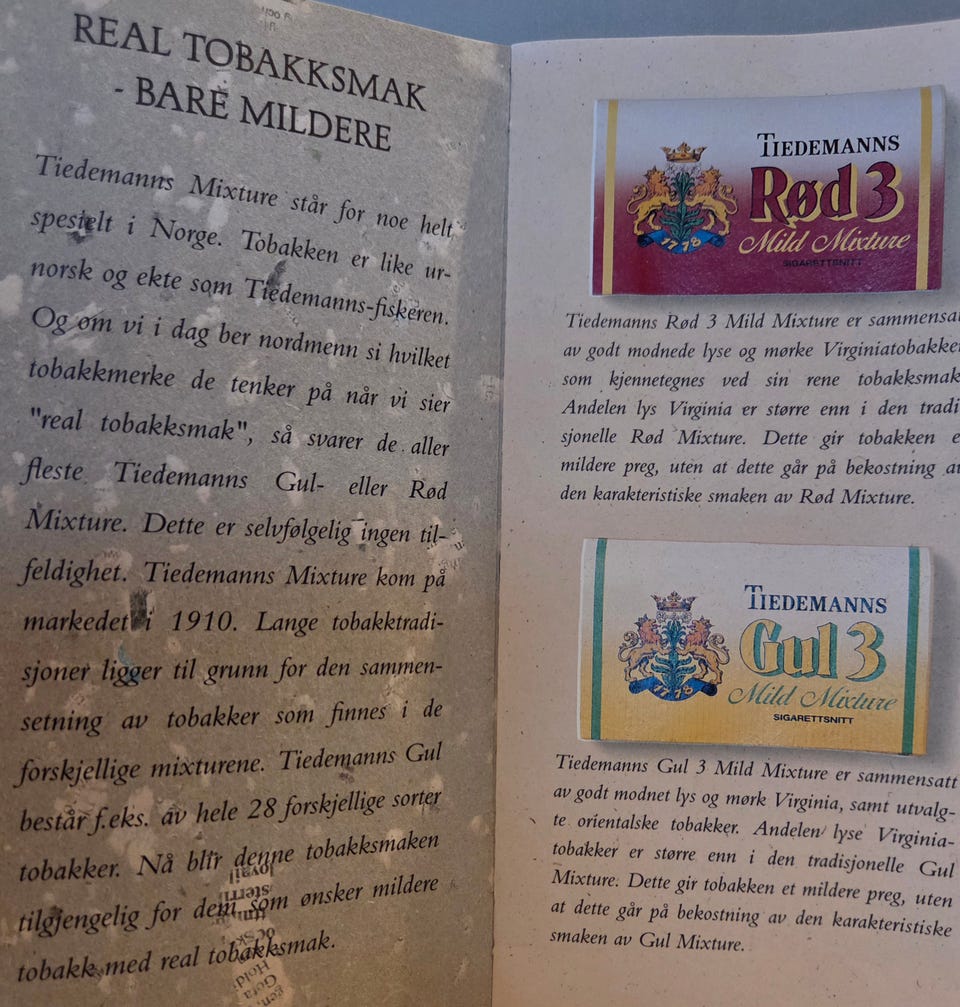 REAL TOBAKKSMAK
- BARE MILDERE
Tiedemanns Mixture står for noe helt
spesielt i Norge. Tobakken er like ur-
norsk og ekte som Tiedemanns-fiskeren.
Og om vi i dag ber nordmenn si hvilket
tobakkmerke de tenker på når vi sier
"real tobakksmak", så svarer de aller
fleste Tiedemanns Gul- eller Rød
Mixture. Dette er selvfølgelig ingen til-
feldighet. Tiedemanns Mixture kom på
markedet i 1910. Lange tobakktradi-
sjoner ligger til grunn for den sammen-
setning av tobakker som finnes i de
forskjellige mixturene. Tiedemanns Gul
består f.eks. av hele 28 forskjellige sorter
tobakker. Nå blir denne tobakksmaken
tilgjengelig for dem som ønsker mildere
tobakk med real tobakksmak.
TIEDEMANNS
Rød 3
Mild Mixture
SIGARETTSNITT
1778
Tiedemanns Rød 3 Mild Mixture er sammensat
av godt modnede lyse og mørke Virginiatobakker
som kjennetegnes ved sin rene tobakksmak
Andelen lys Virginia er større enn i den tradi
sjonelle Rød Mixture. Dette gir tobakken e
mildere preg, uten at dette går på bekostning av
den karakteristiske smaken av Rød Mixture.
TIEDEMANNS
Gul 3
Mild Mixture
SIGARETTSNITT
1778
Tiedemanns Gul 3 Mild Mixture er sammensatt
av godt modnet lys og mørk Virginia, samt utvalg-
te orientalske tobakker. Andelen lyse Virginia-
tobakker er større enn i den tradisjonelle Gul
Mixture. Dette gir tobakken et mildere preg, uten
at dette går på bekostning av den karakteristiske
smaken av Gul Mixture.